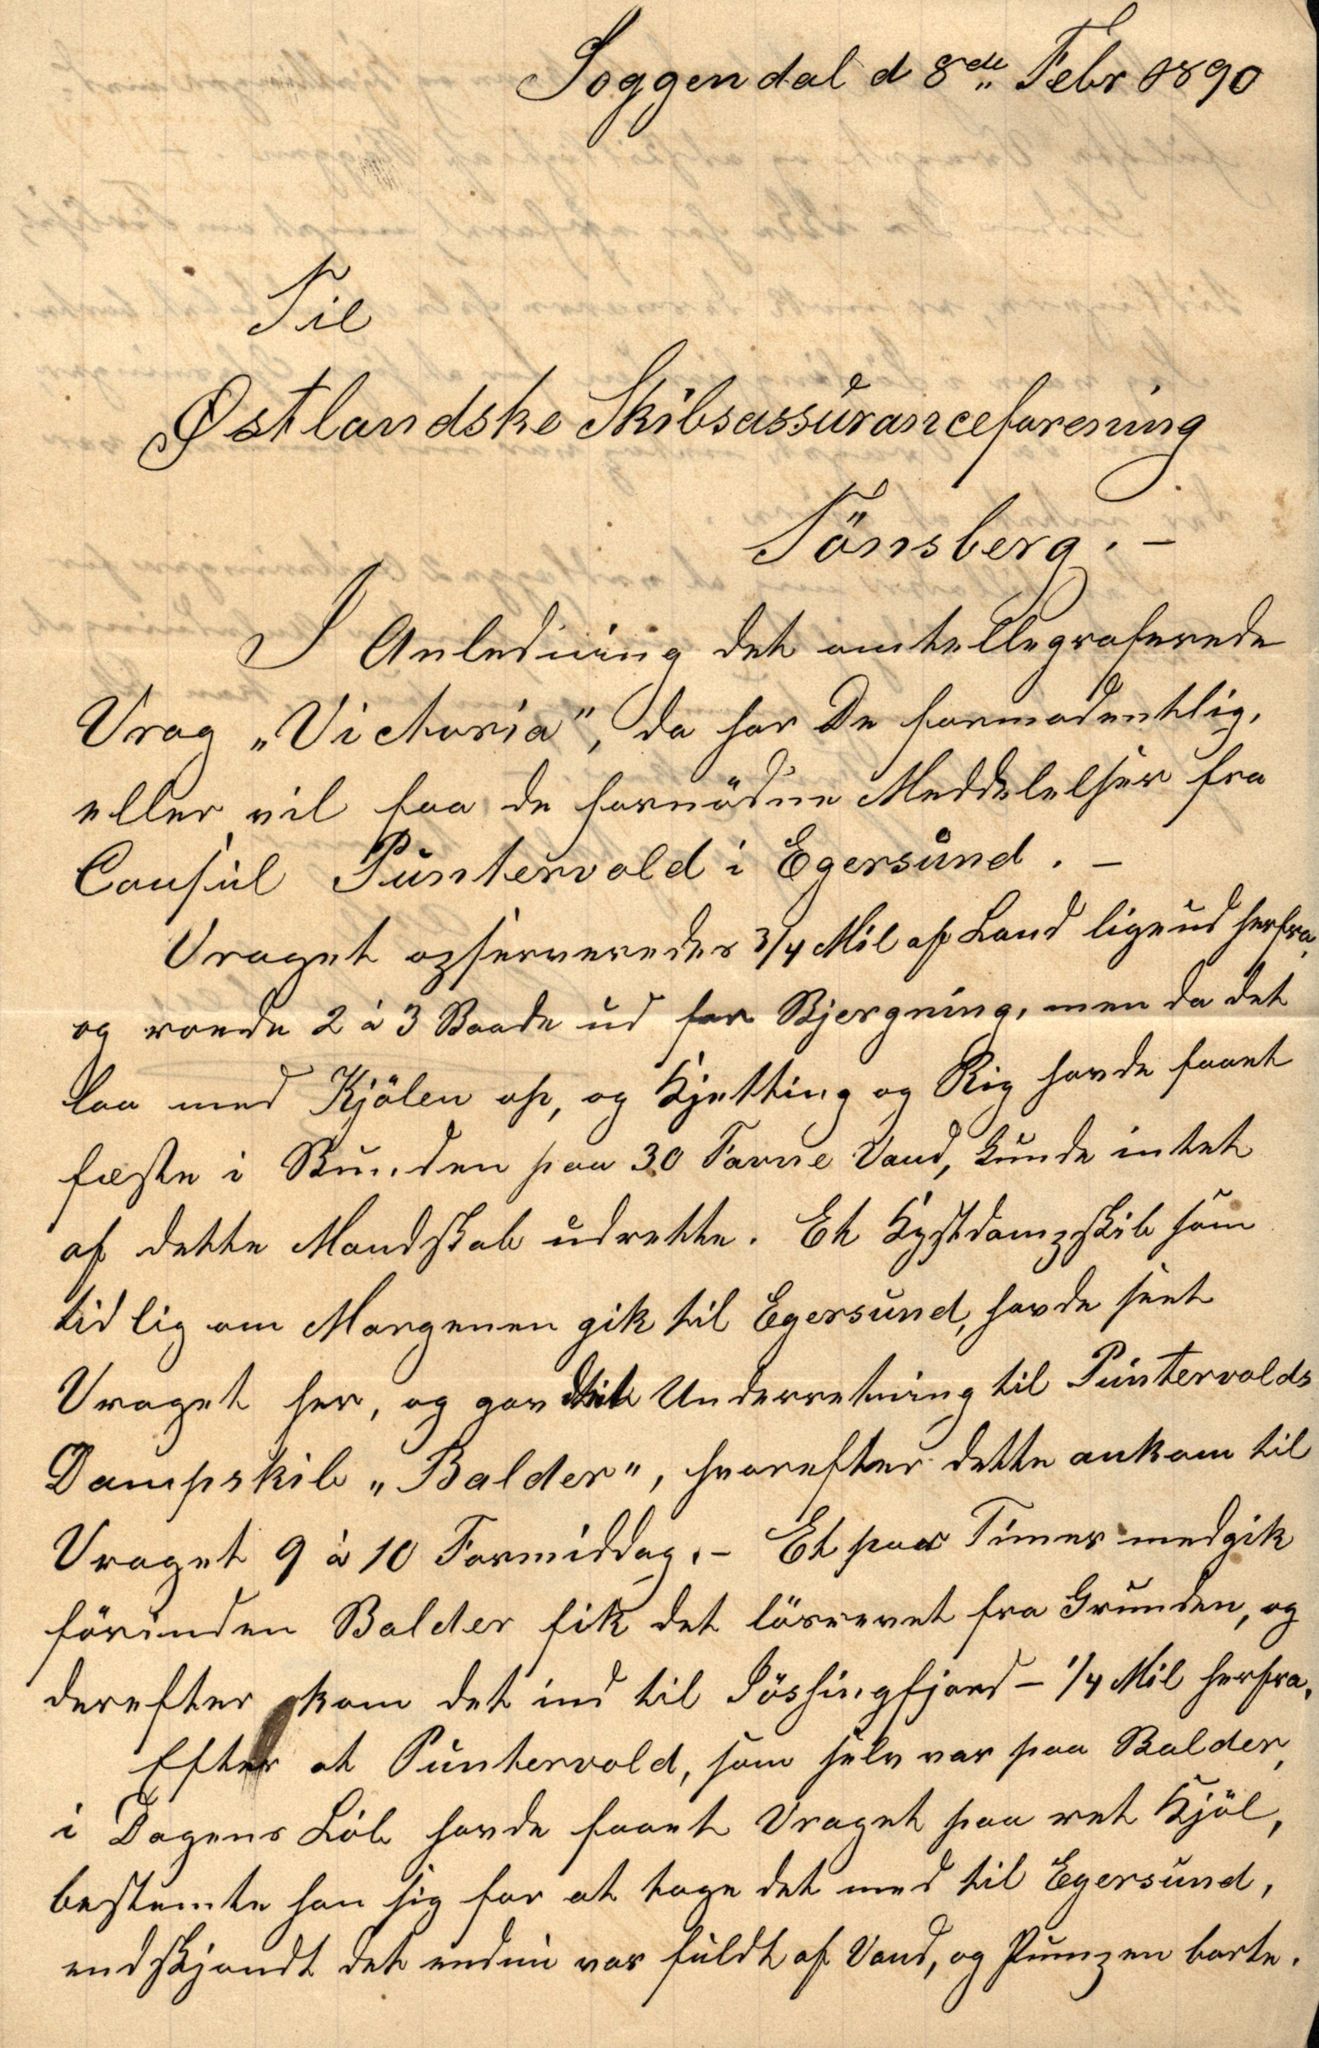 Soggendal d 8de Febr 1890
Til
Østlandske Skibsassuranceforening
Tönsberg. –
I Anledning det omtellegraferede
Vrag „Victoria”, da har De formodentlig,
eller vil faa de fornödne Meddelelser fra
Consul Puntervold i Egersund. –
Vraget opserveredes 3/4 Mil af Land ligeud herfra,
og roede 2 à 3 Baade ud for Bjergning, men da det
laa med Kjölen op, og Kjetting og Rig havde faaet
fæste i Bunden paa 30 Favne Vand, kunde intet
af dette Mandskab udrette. Et Kystdampskib som
tidlig om Morgenen gik til Egersund, havde seet
Vraget her, og gav Underretning til Puntervolds
Dampskib „Balder”, hvorefter dette ankom til
Vraget 9 à 10 Formiddag. – Et par Timer medgik
förinden Balder fik det lösrevet fra Grunden, og
derefter kom det ind til Jössingfjord – 1/4 Mil herfra.
Efter at Puntervold, som selv var paa Balder,
i Dagens Löb havde faaet Vraget paa ret Kjöl,
bestemte han sig for at tage det med til Egersund,
endskjøndt det endnu var fuldt af Vand, og Pumpen borte.